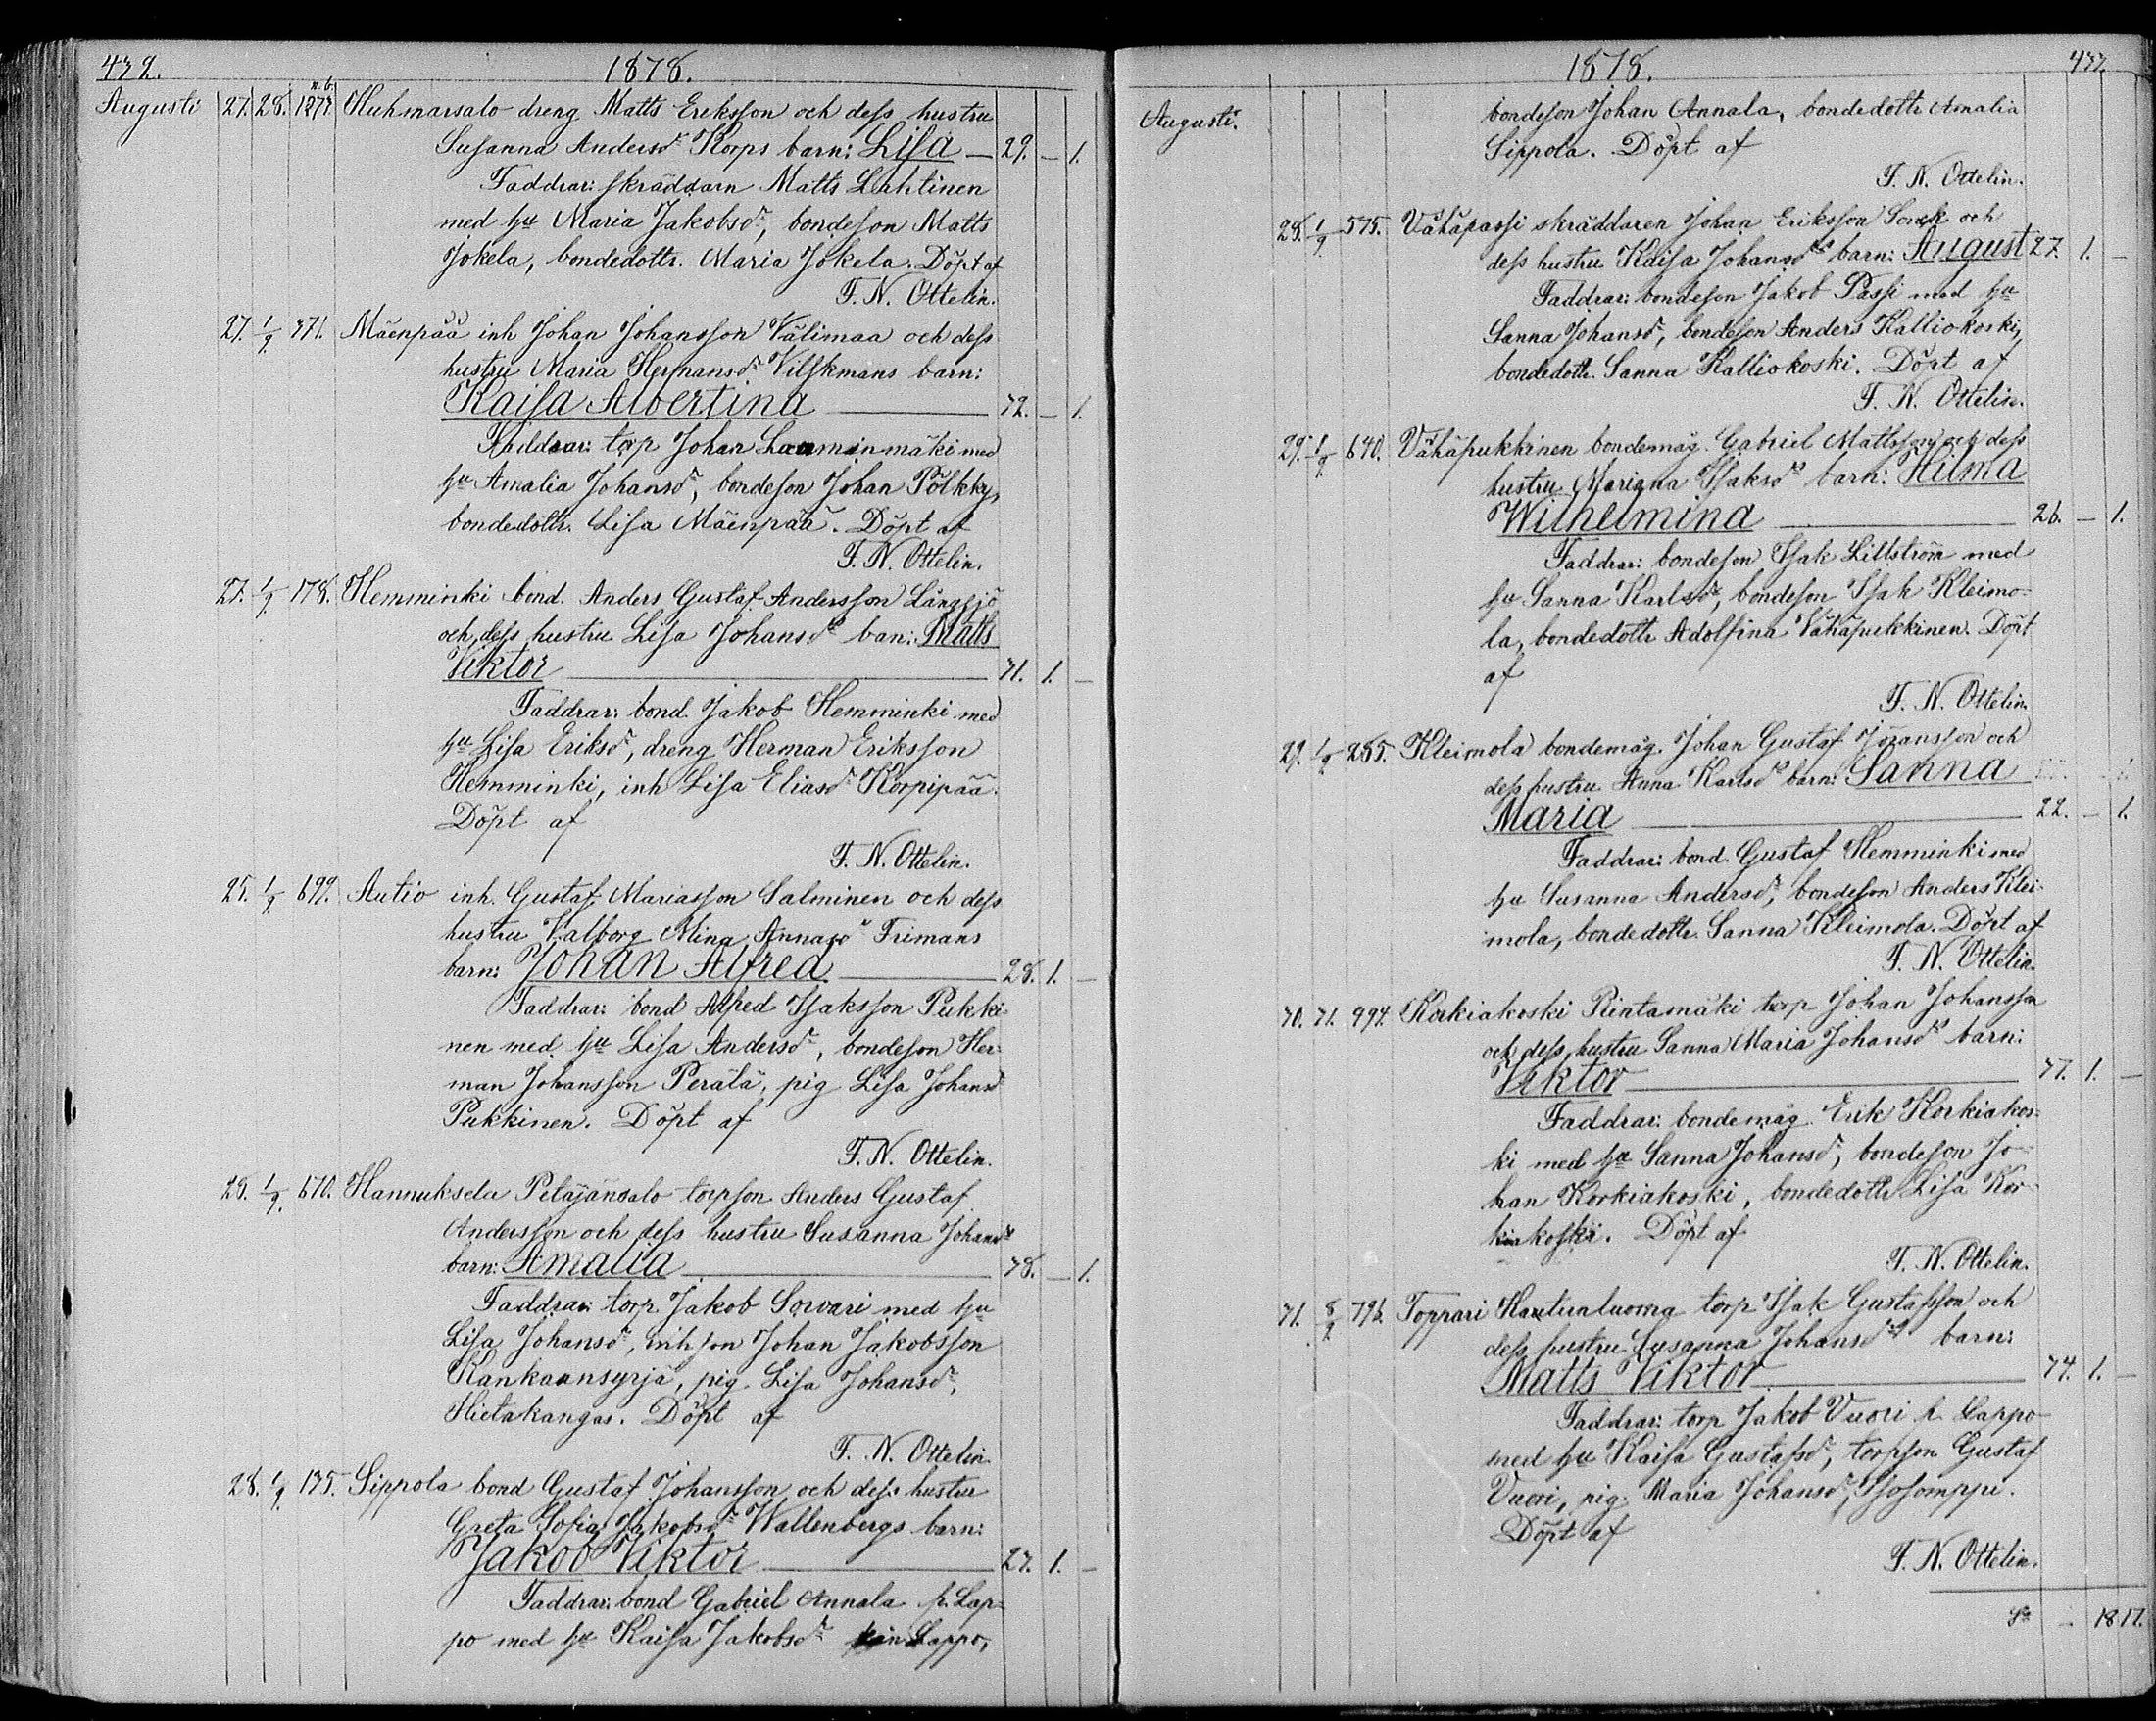 432.
1878.
Augusti 27. 28. n.b. 1277. Huhmarsalo dreng Matts Eriksson och dess hustru
Susanna Andersdr Korps barn: Lisa — 29. — 1.
Faddrar: skräddarn Matts Lahtinen
med hu Maria Jakobsdr, bondeson Matts
Jokela, bondedottr. Maria Jokela. Döpt af
F. N. Ottelin.
27. 1/9 371. Mäenpää inh Johan Johansson Välimaa och dess
hustru Maria Hermansdr Vilskmans barn:
Kaisa Albertina — 32. — 1.
Faddrar: torp Johan Lamminmäki med
hu Amalia Johansdr, bondeson Johan Pölkky,
bondedottr. Lisa Mäenpää. Döpt af
F. N. Ottelin.
27. 1/9 178. Hemminki bond. Anders Gustaf Andersson Långsjö
och dess hustru Lisa Johansdrs ban: Matts
Viktor — 31. 1. —
Faddrar: bond. Jakob Hemminki med
hu Lisa Eriksdr, dreng Herman Eriksson
Hemminki, inh Lisa Eliasdr Korpipää.
Döpt af
F. N. Ottelin.
25. 1/9 699. Autio inh. Gustaf Mariasson Salminen och dess
hustru Valborg Mina Annasdr Frimans
barn: Johan Alfred — 28. 1. —
Faddrar: bond Alfred Isaksson Pukki-
nen med hu Lisa Andersdr, bondeson Her-
man Johansson Perälä, pig Lisa Johansdr
Pukkinen. Döpt af
F. N. Ottelin.
28. 1/9. 670. Hannuksela Petäjänsalo torpson Anders Gustaf
Andersson och dess hustru Susanna Johansdrs
barn: Amalia — 38. — 1.
Faddrar: torp. Jakob Sorvari med hu
Lisa Johansdr, inhson Johan Jakobsson
Kankaansyrjä, pig. Lisa Johansdr,
Hietakangas. Döpt af
F. N. Ottelin
28. 1/9 135. Sippola bond Gustaf Johansson och dess hustru
Greta Sofia Jakobsdr Wallenbergs barn:
Jakob Viktor — 27. 1. —
Faddrar: bond Gabriel Annala fr. Lap-
po med hu Kaisa Jakobsdr Lappo,
1878.
433.
Augusti.
bondeson Johan Annala, bondedottr Amalia
Sippola. Döpt af
F. N. Ottelin.
28. 1/9 575. Vähäpassi skräddaren Johan Eriksson Sonck och
dess hustru Kaisa Johansdrs barn: August 27. 1. —
Faddrar: bondeson Jakob Passi med hu
Sanna Johansdr, bondeson Anders Kalliokoski,
bondedottr. Sanna Kalliokoski. Döpt af
F. N. Ottelin.
29. 1/9 640. Vähäpukkinen bondemåg. Gabriel Mattsson och dess
hustru Mariana Isaksdrs barn: Hilma
Wilhelmina — 26. — 1.
Faddrar: bondeson Isak Lillström med
hu Sanna Karlsdr, bondeson Isak Kleimo-
la, bondedottr Adolfina Vähäpukkinen. Döpt
af
F. N. Ottelin.
29. 1/9 285. Kleimola bondemåg. Johan Gustaf Johansson och
dess hustru Anna Karlsdrs barn: Sanna
Maria — 22. — 1.
Faddrar: bond. Gustaf Hemminki med
hu Susanna Andersdr, bondeson Anders Klei-
mola, bondedottr. Sanna Kleimola. Döpt af
F. N. Ottelin.
30. 31. 994. Korkiakoski Rintamäki torp Johan Johansson
och dess hustru Sanna Maria Johansdrs barn:
Viktor — 37. 1. —
Faddrar: bondemåg. Erik Korkiakos-
ki med hu Sanna Johansdr, bondeson Jo-
han Korkiakoski, bondedottr Lisa Kor-
kiakoski. Döpt af
F. N. Ottelin.
31. 8/9 796. Toppari Hautunluoma torp Isak Gustafsson och
dess hustru Susanna Johansdrs barn:
Matts Viktor — 34. 1. —
Faddrar: torp Jakob Vuori fr Lappo
med hu Kaisa Gustafsdr, torpson Gustaf
Vuori, pig. Maria Johansdr,
Döpt af
F. N. Ottelin.
Sa — 18 17.